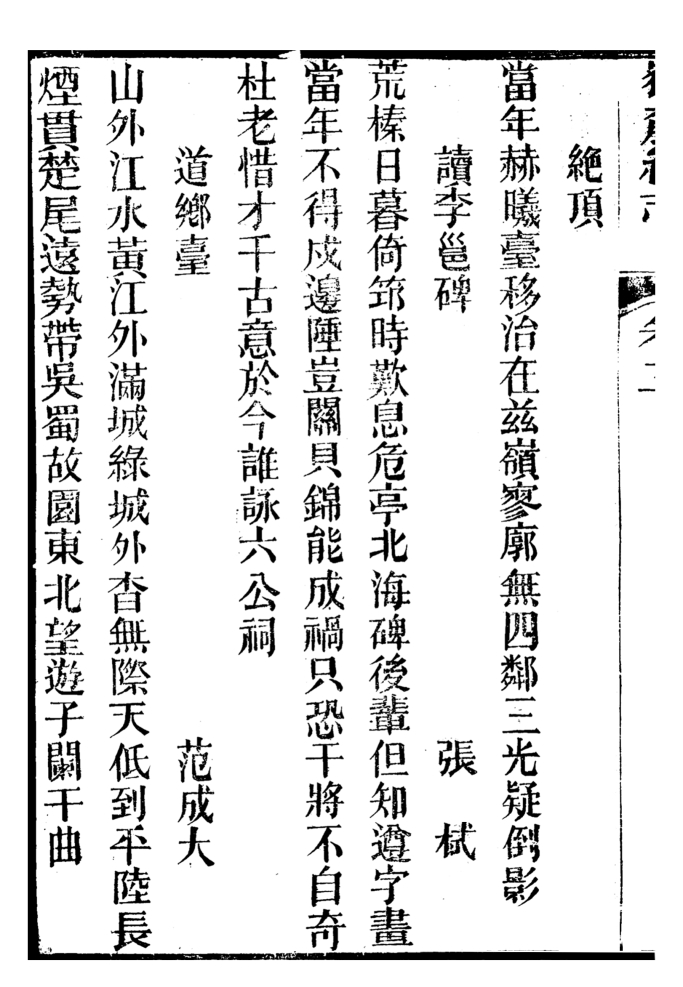 絶頂
當年赫曦臺移治在兹嶺寥廓無四鄰三光疑倒影
讀李邕碑 張栻
荒榛日暮倚筇時歎息危亭北海碑後輩但知遵字畫
當年不得戍邊陲豈關貝錦能成禍只恐干將不自奇
杜老惜才千古意於今誰詠六公祠
道鄉臺 范成大
山外江水黃江外滿城綠城外杳無際天低到平陸長
煙貫楚尾遠勢帶吳蜀故園東北望遊子闌干曲